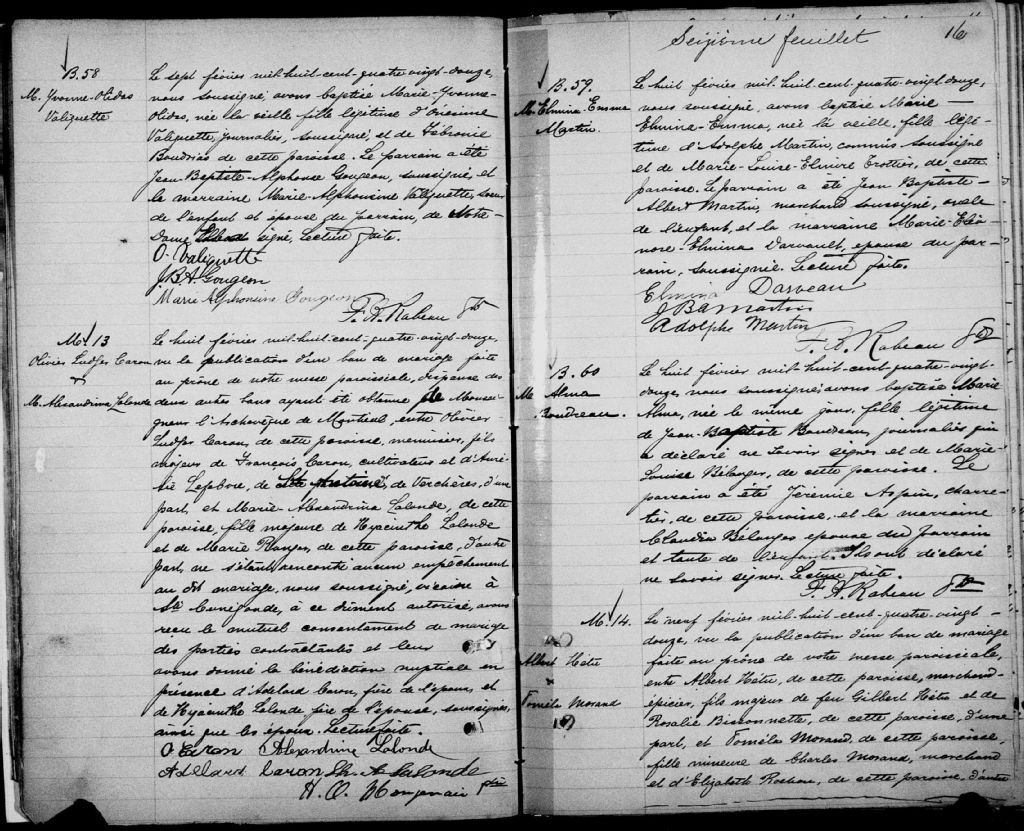 B.58
M. Yvonne-Olidas
Valiquette
Le sept février mil-huit-cent-quatre-vingt-douze,
nous soussigné, avons baptisé Marie-Yvonne-
Olidas, née la vieille fille légitime d'Onésime
Valiquette, journalier, soussigné, et de Fébronie
Boudrias de cette paroisse. Le parrain a été
Jean-Baptiste-Alphonse Gougeon, soussigné, et
la marraine Marie-Alphonsine Valiquette, soeur
de l'enfant et épouse du parrain, de Notre-
Dame signé, Lecture faite.
O. Valiquette
J.B.A. Gougeon
Marie Alphonsine Gougeon
F.X. Rabeau Ptr
M. 13
Olivier Ludger Caron
&
M. Alexandrina Lalonde
Le huit février mil-huit-cent-quatre-vingt-douze,
vu la publication d'un ban de mariage faite
au prône de notre messe paroissiale, dispense des
deux autres bans ayant été obtenue de Monsei-
gneur l'Archevêque de Montréal, entre Olivier
Ludger Caron, de cette paroisse, menuisier, fils
majeur de François Caron, cultivateur et d'Auré-
lie Lefebvre, de de Verchères, d'une
part, et Marie-Alexandrina Lalonde, de cette
paroisse, fille majeure de Hyacinthe Lalonde
et de Marie Ranger, de cette paroisse, d'autre
part, ne s'étant rencontré aucun empêchement
au dit mariage, nous soussigné, vicaire à
Ste Cunégonde, à ce dûment autorisé, avons
reçu le mutuel consentement de mariage
des parties contractantes et leur
avons donné la bénédiction nuptiale en
présence d'Adélard Caron, frère de l'époux, et
de Hyacinthe Lalonde père de l'épouse, soussignés,
ainsi que les époux. Lecture faite.
O Caron Alexandrine Lalonde
Adélard Caron A Lalonde
H. O. ptre
Seizième feuillet
16
B. 59.
M. Elmina-Emma
Martin.
Le huit février mil-huit-cent-quatre-vingt-douze,
nous soussigné, avons baptisé Marie-
Elmina-Emma, née la veille, fille légi-
time d'Adolphe Martin, commis, soussigné
et de Marie-Louise-Elmire Trottier, de cette
paroisse. Le parrain a été Jean Baptiste-
Albert Martin, marchand soussigné, oncle
de l'enfant, et la marraine Marie-Eléo-
nore-Elmina Darvault, épouse du par-
rain, soussignée. Lecture faite.
Elmina Darveau
J B A Martin
Adolphe Martin
F. X. Rabeau Ptr
B. 60
M. Alma
Boudreau.
Le huit février mil-huit-cent-quatre-vingt-
douze, nous soussigné, avons baptisé Marie
Alma, née le même jour, fille légitime
de Jean-Baptiste Boudreau, journalier qui
a déclaré ne savoir signer et de Marie-
Louise Bélanger, de cette paroisse. Le
parrain a été Jérémie Aspin, charre-
tier, de cette paroisse, et la marraine
Claudia Bélanger épouse du parrain
et tante de l'enfant. Ils ont déclaré
ne savoir signer. Lecture faite.
F. X. Rabeau Ptr
M. 14.
Albert Hétu
&
Toméla Morand
Le neuf février mil-huit-cent-quatre-vingt-
douze, vu la publication d'un ban de mariage
faite au prône de notre messe paroissiale,
entre Albert Hétu, de cette paroisse, marchand-
épicier, fils majeur de feu Gilbert Hétu et de
Rosalie Bissonnette, de cette paroisse, d'une
part, et Toméla Morand, de cette paroisse,
fille mineure de Charles Morand, marchand
et d'Elizabeth Rochon, de cette paroisse, d'autre